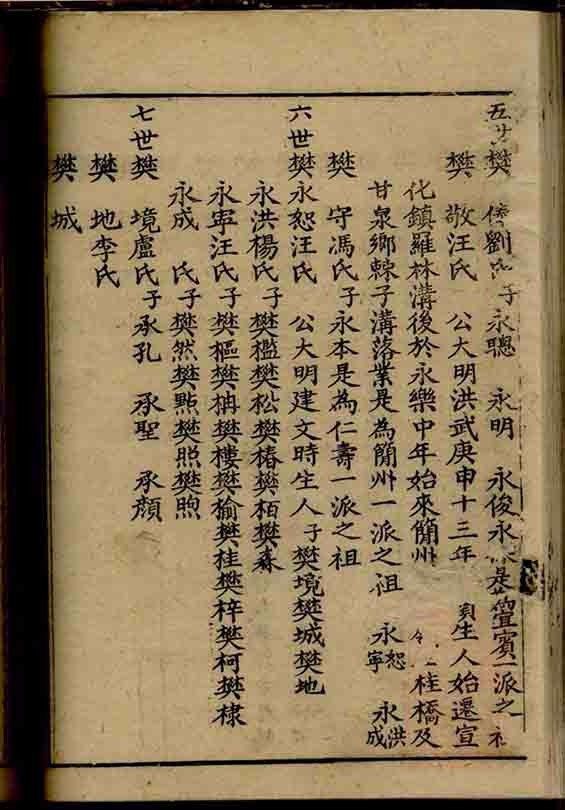 五世樊 劉氏子永聰 永明 永俊永 是 宜賓一派之祖
樊 敬汪氏 公大明洪武庚申十三年 生人始遷宣
化鎮羅林溝後於永樂中年始來簡州 桂橋及
甘泉鄉棘子溝落業是為簡州一派之祖 永恕 永寧 永洪 永成
樊 守馮氏子永本是為仁壽一派之祖
六世樊永恕汪氏 公大明建文時生人子樊境樊城樊地
永洪楊氏子樊檻樊松樊椿樊栢樊森
永寧汪氏子樊樞樊柟樊樓樊榆樊桂樊梓樊柯樊棣
永成 氏子樊然樊點樊照樊煦
七世樊 境盧氏子承孔 承聖 承顏
樊 地李氏
樊 城